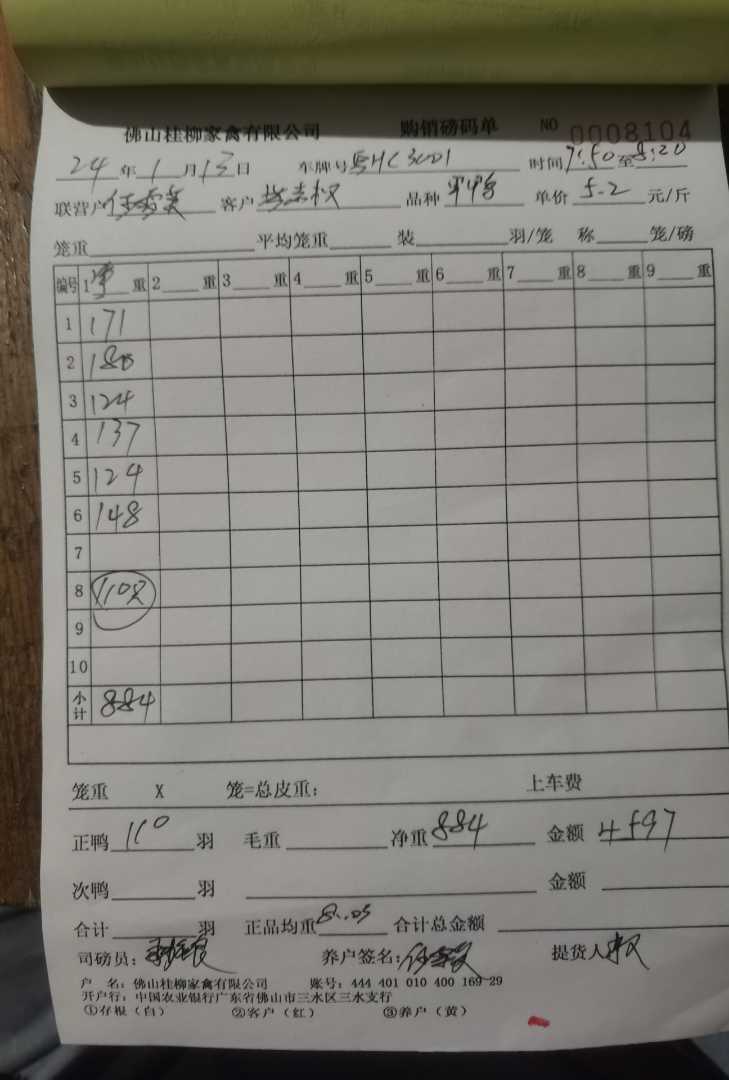 佛山桂柳家禽有限公司 购销磅码单 NO 0008104
24年1月13日 车牌号粤HC3001 时间7:50至8:20
联营户 客户 品种 单价5.2元/斤
笼重 平均笼重 装 羽/笼 称 笼/磅
编号 1 重 2 重 3 重 4 重 5 重 6 重 7 重 8 重 9 重
1 171
2 180
3 124
4 137
5 124
6 148
7
8
9
10
小计 884
笼重 X 笼=总皮重: 上车费
正鸭110羽 毛重 净重884 金额4597
次鸭 羽 金额
合计 羽 正品均重8.03 合计总金额
司磅员: 养户签名: 提货人
户 名: 佛山桂柳家禽有限公司 账号: 444 401 010 400 169 29
开户行: 中国农业银行广东省佛山市三水区三水支行
①存根(白) ②客户(红) ③养户(黄)